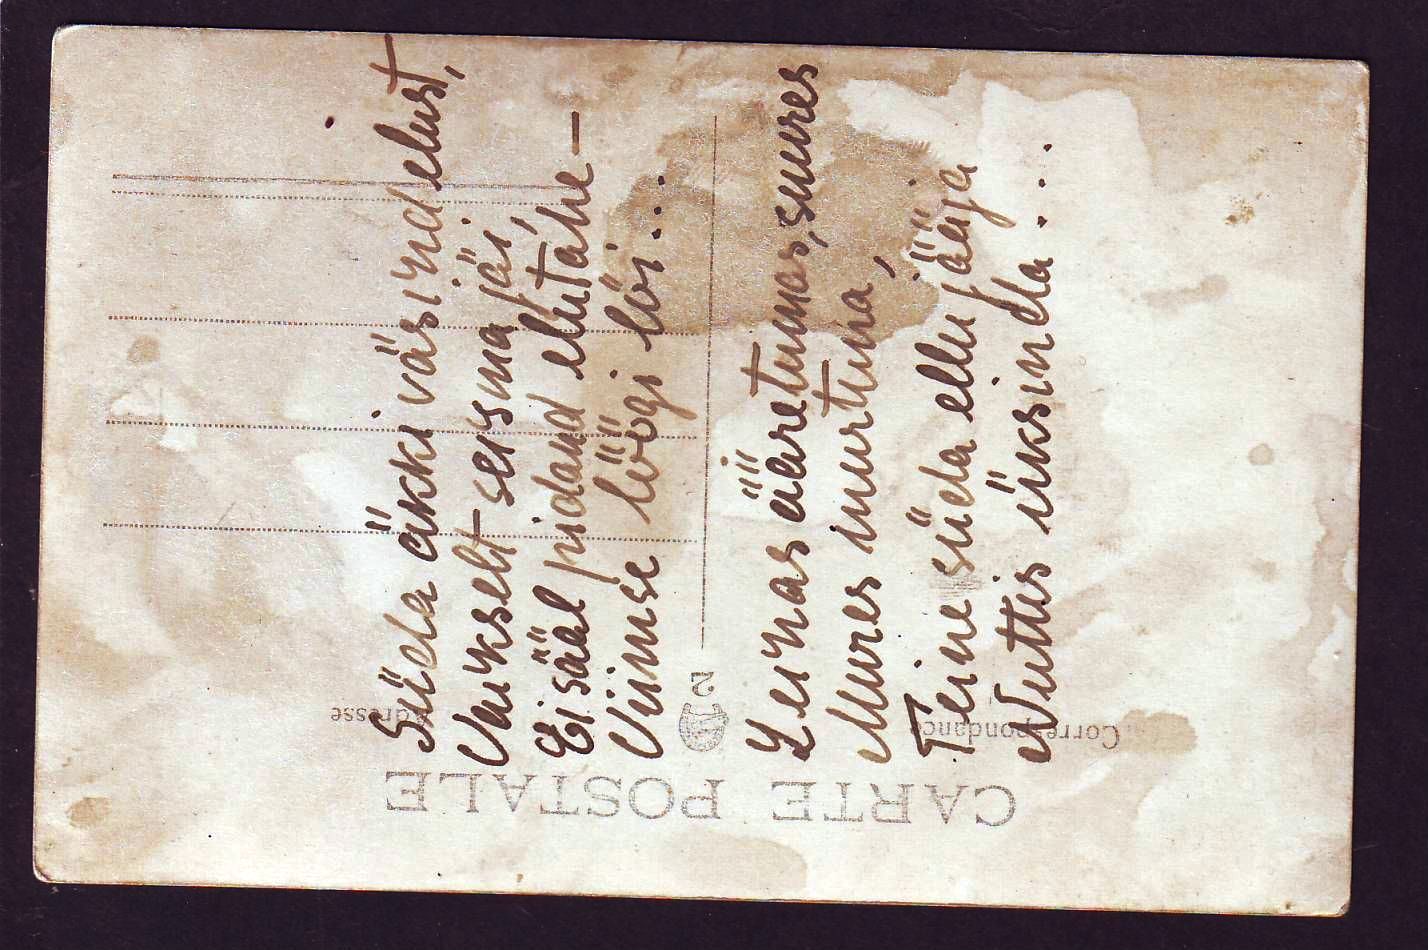 Süda äkki väsind elust,
Vaikselt seisma jäi,
Ei sääl pidand elutahe —
Viimse löögi lõi....
Leinas ääretumas, suures
Mures murtuna,
Teine süda ellu jääja
Nuttis üksinda....
CARTE POSTALE
Correspondance
Adresse
2